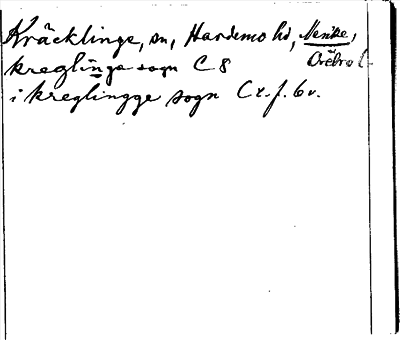 Kräcklinge, sn, Hardemo hd, Nerike,
Örebro l.
kreglinge sogn C 8
i kreglingge sogn C x. f. 6 v.